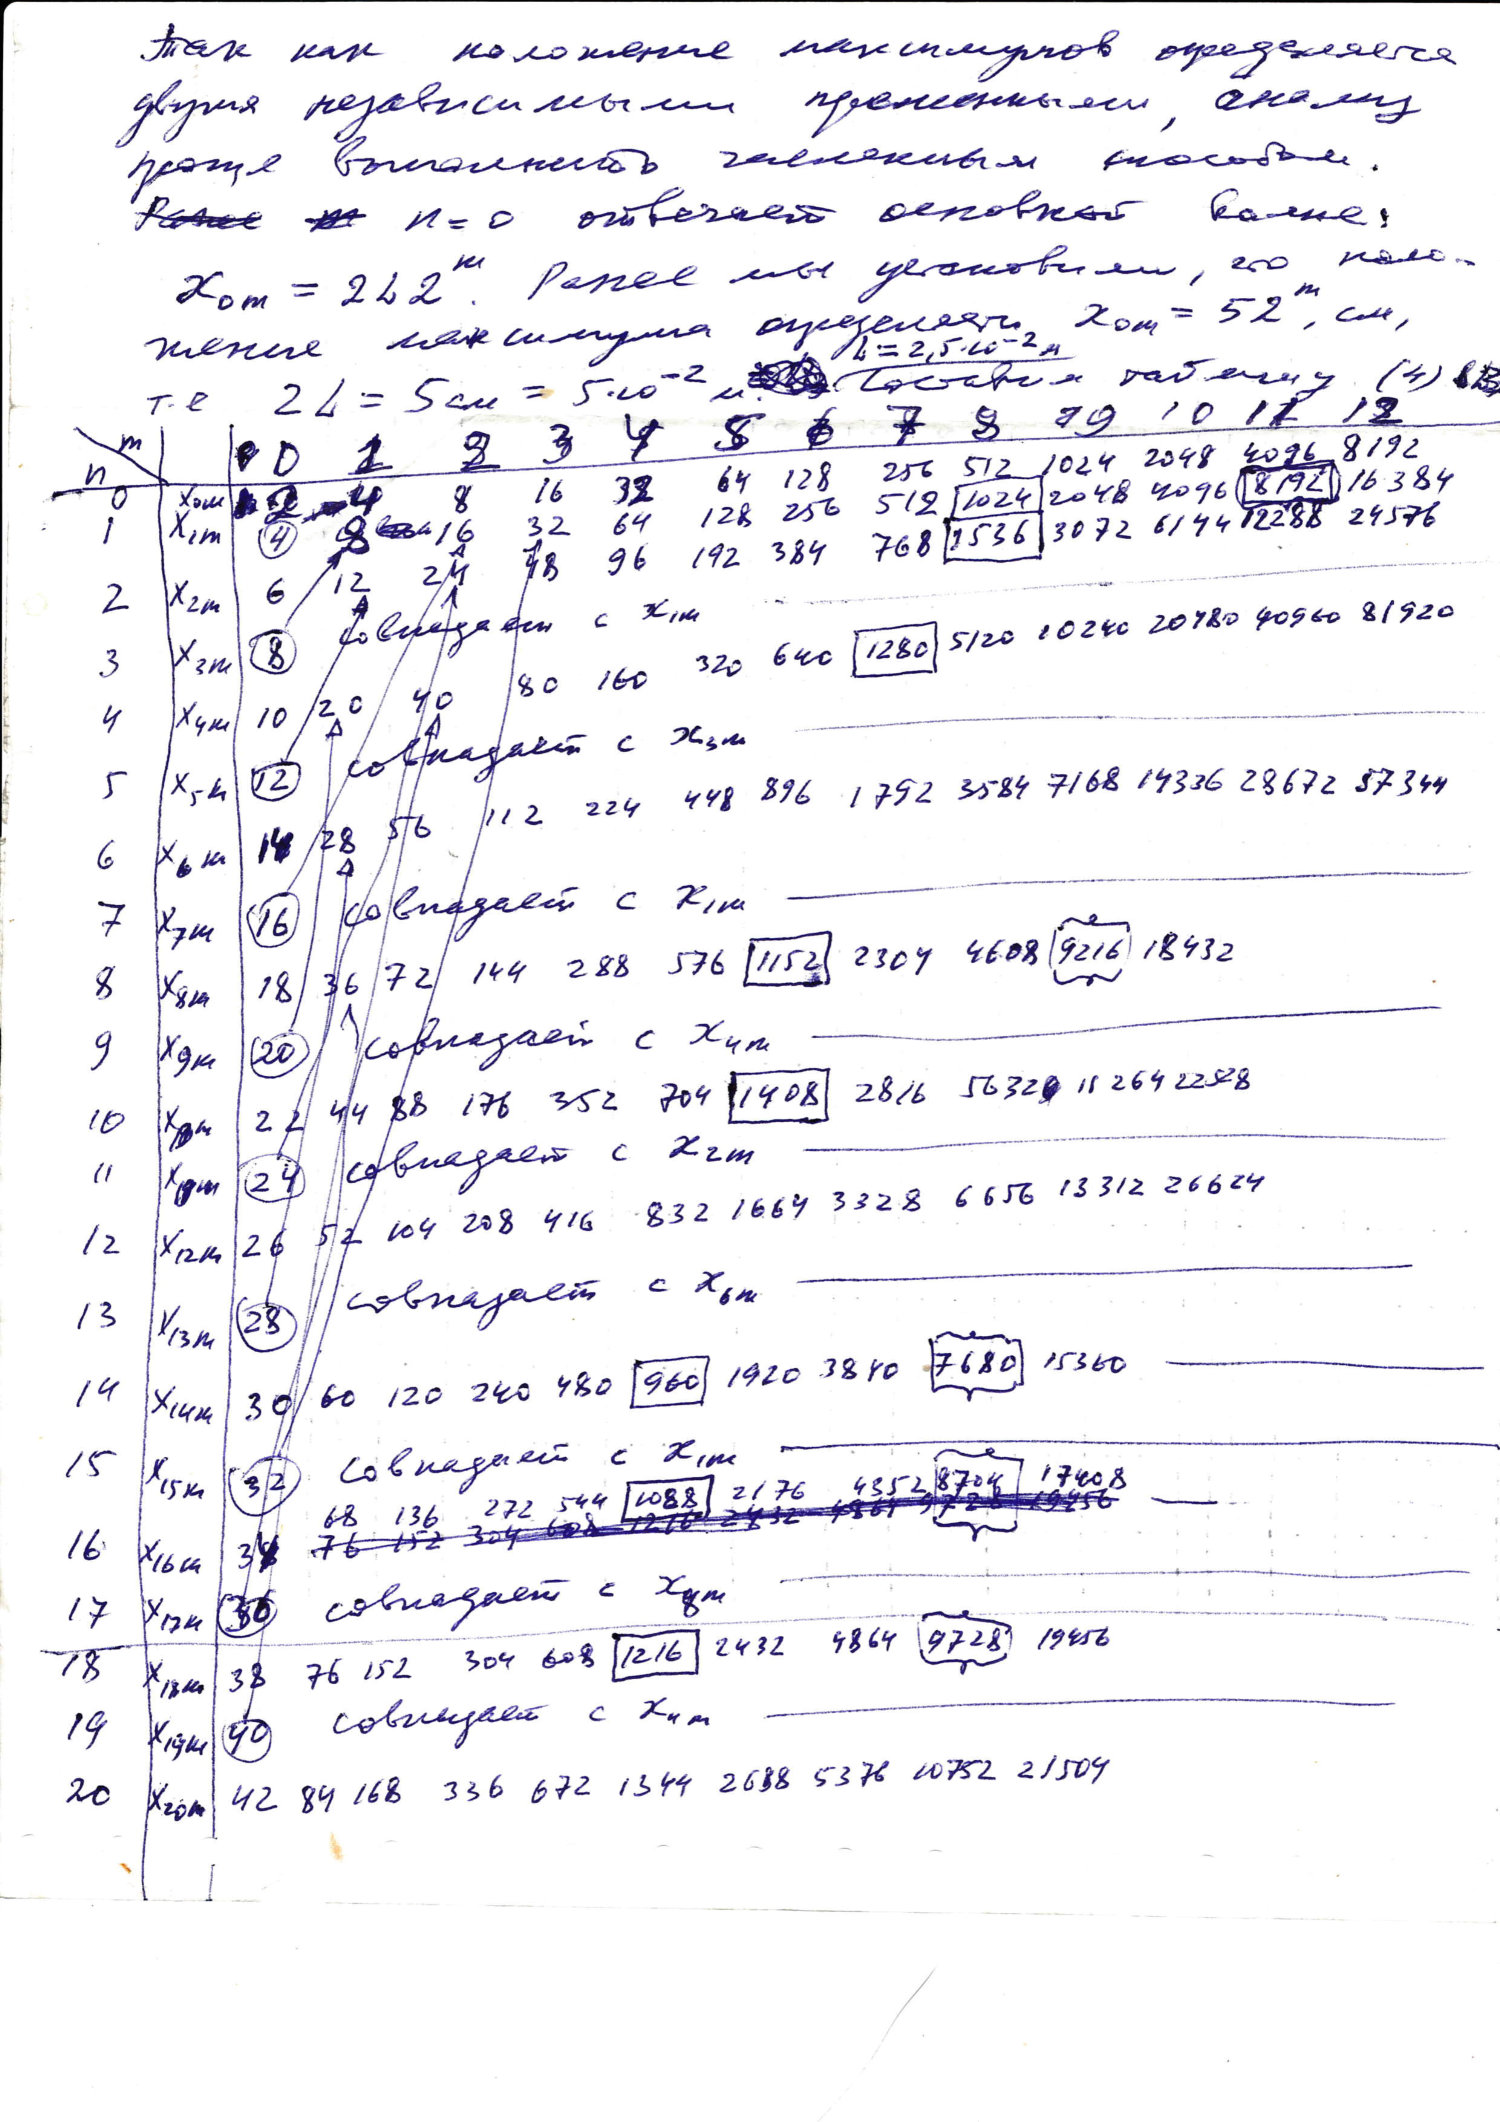 Так как положение максимумов определяется
двумя независимыми переменными, анализ
проще выполнить численным способом.
n = 0 отвечает основной волне:
x₀ₘ = 2L2ᵐ. Ранее мы установили, что поло-
жение максимума определяется x₀ₘ = 5 2ᵐ, см,
L = 2,5·10⁻² м
т.е 2L = 5 см = 5·10⁻² м. Составим таблицу (4)
m 0 1 2 3 4 5 6 7 8 9 10 11 12
n
0 x₀ₘ 2 4 8 16 32 64 128 256 512 1024 2048 4096 8192
1 x₁ₘ 4 8 16 32 64 128 256 512 1024 2048 4096 8192 16384
2 x₂ₘ 6 12 24 48 96 192 384 768 1536 3072 6144 12288 24576
3 x₃ₘ 8 совпадает с x₁ₘ
4 x₄ₘ 10 20 40 80 160 320 640 1280 5120 10240 20480 40960 81920
5 x₅ₘ 12 совпадает с x₃ₘ
6 x₆ₘ 14 28 56 112 224 448 896 1792 3584 7168 14336 28672 57344
7 x₇ₘ 16 совпадает с x₁ₘ
8 x₈ₘ 18 36 72 144 288 576 1152 2304 4608 9216 18432
9 x₉ₘ 20 совпадает с x₄ₘ
10 x₁₀ₘ 22 44 88 176 352 704 1408 2816 5632 11264 22528
11 24 совпадает с x₂ₘ
12 x₁₂ₘ 26 52 104 208 416 832 1664 3328 6656 13312 26624
13 x₁₃ₘ 28 совпадает с x₆ₘ
14 x₁₄ₘ 30 60 120 240 480 960 1920 3840 7680 15360
15 x₁₅ₘ 32 совпадает с x₁ₘ
68 136 272 544 1088 2176 4352 8704 17408
16 x₁₆ₘ 34 76 152 304 608 1216 2432 4864 9728 19456
17 x₁₇ₘ 36 совпадает с x₈ₘ
18 x₁₈ₘ 38 76 152 304 608 1216 2432 4864 9728 19456
19 x₁₉ₘ 40 совпадает с x₄ₘ
20 x₂₀ₘ 42 84 168 336 672 1344 2688 5376 10752 21504